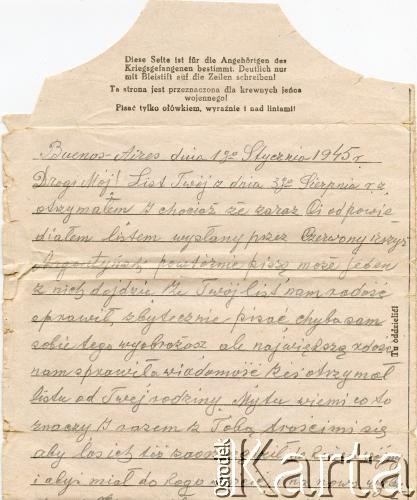 Diese Seite ist für die Angehörigen des
Kriegsgefangenen bestimmt. Deutlich nur
mit Bleistift auf die Zeilen schreiben!
Ta strona jest przeznaczona dla krewnych jeńca
wojennego!
Pisać tylko ołówkiem, wyraźnie i nad liniami!
Buenos-Aires dnia Stycznia 1945 r
Drogi Mój! List Twój z dnia Sierpnia r.z
otrzymałem I chociaż że zaraz Ci odpowie
działem listem wysłany przez Czerwony
powtórnie piszą może jeden
z nich dojdzie. Że Twój list nam radość
sprawił zbytecznie pisać chyba sam
sobie tego wyobrożasz ale największą
nam sprawiła wiadomość żeś otrzymał
listu od Twej rodziny. My tu wiemi co to
znaczy I razem z Tobą troscimi się
aby los ich też
i abyś miał do kogo
Tu oddzielić!
Ośrodek
Karta